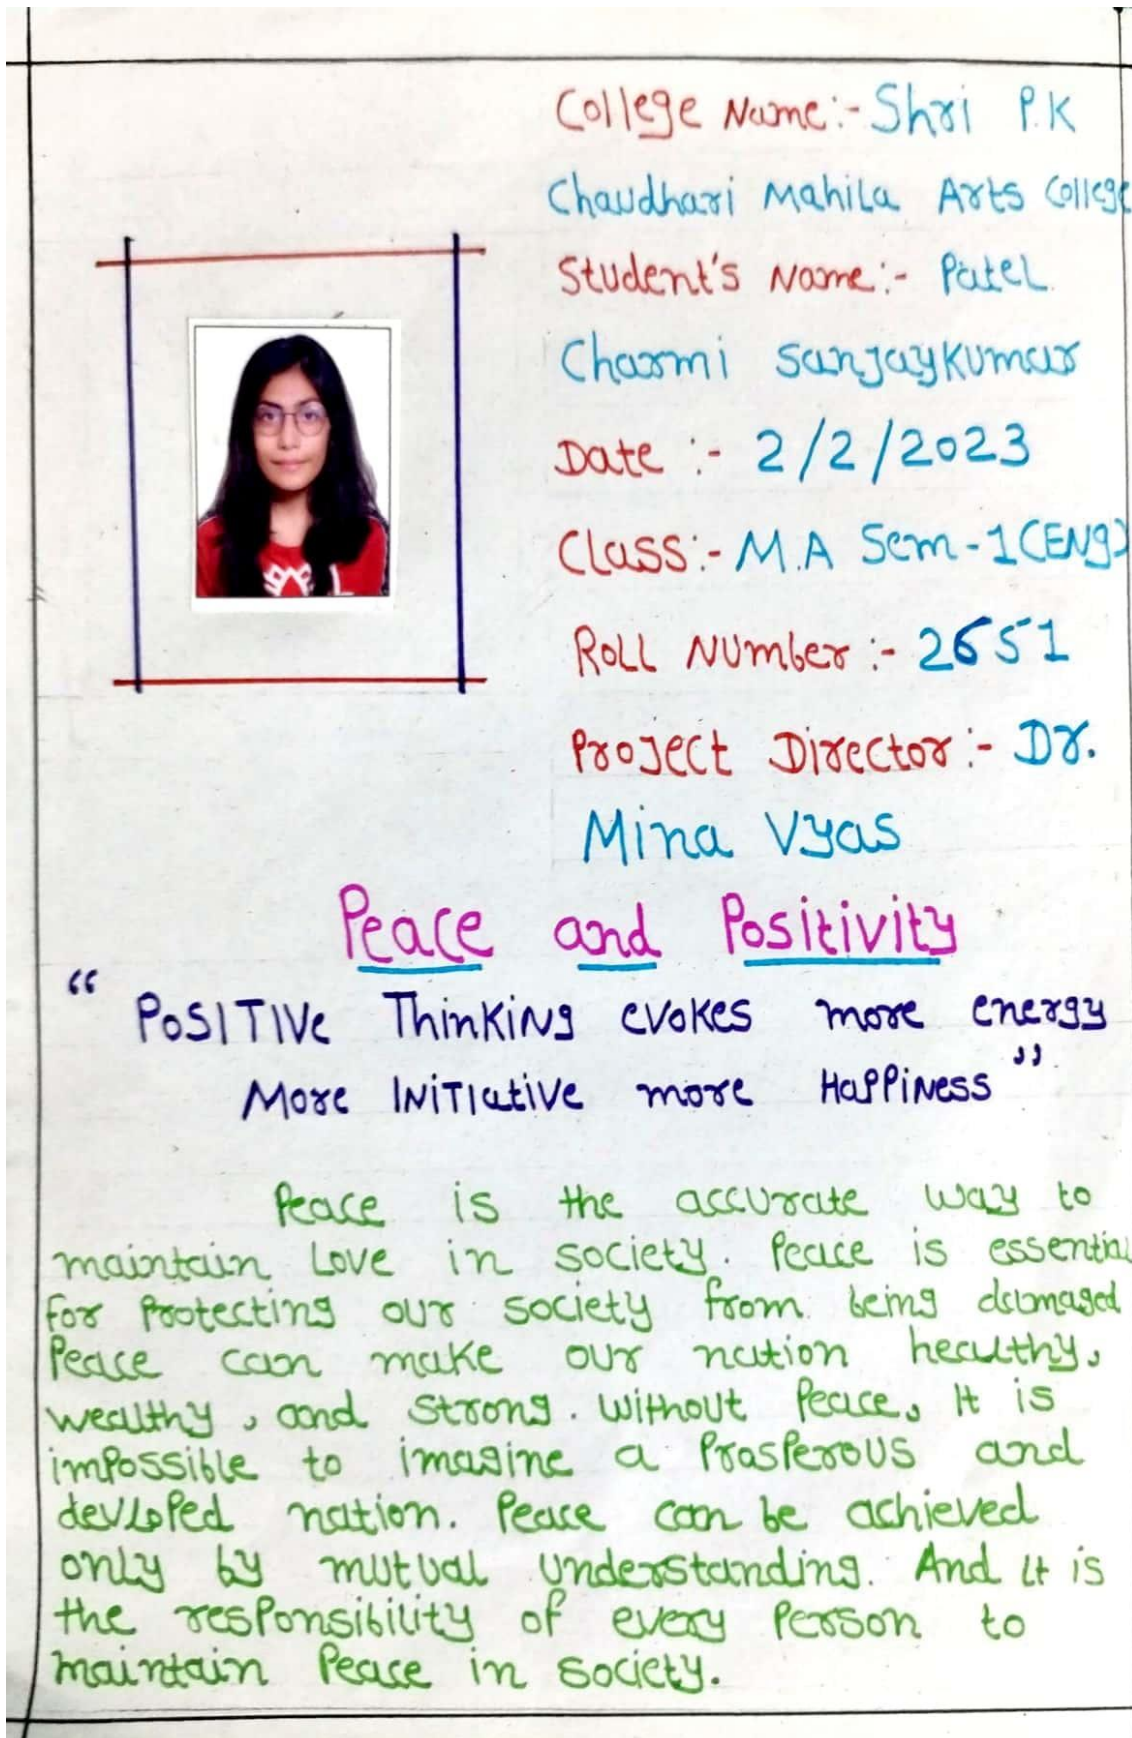 College Name:- Shri P.K
Chaudhari Mahila Arts College
Student's Name:- Patel
Charmi Sanjaykumar
Date :- 2/2/2023
Class:- M.A Sem-1(ENg)
Roll Number :- 2651
Project Director:- Dr.
Mina Vyas
Peace and Positivity
“ Positive Thinking evokes more energy
More Initiative more Happiness ”
Peace is the accurate way to
maintain Love in society. Peace is essential
for protecting our society from being damaged
Peace can make our nation healthy,
wealthy, and strong. Without Peace, It is
impossible to imagine a Prosperous and
devloped nation. Peace can be achieved
only by mutual understanding. And it is
the responsibility of every person to
maintain Peace in society.